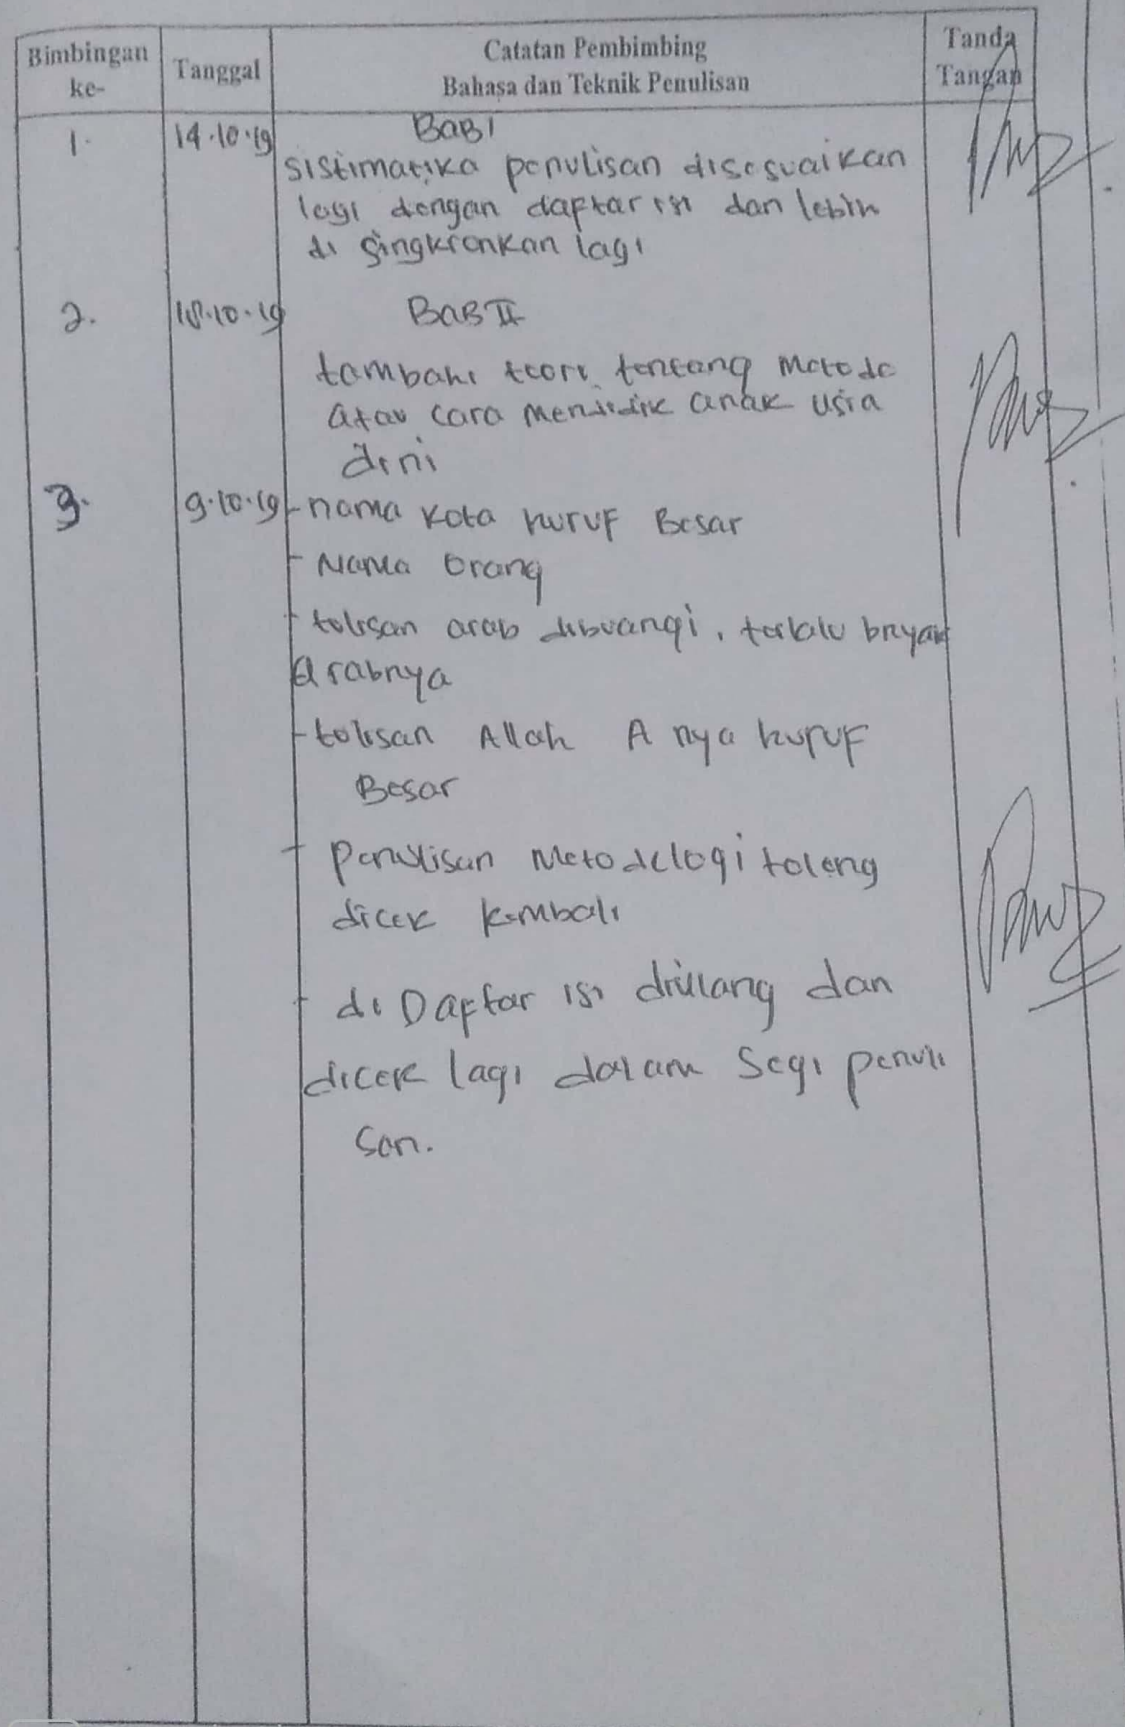 Bimbingan ke-
Tanggal
Catatan Pembimbing
Bahasa dan Teknik Penulisan
Tanda Tangan
1. 14.10.19 BAB I
sistimatika penulisan disesuaikan
lagi dengan daftar isi dan lebih
di singkronkan lagi
2. 18.10.19 BAB II
tambahi teori tentang Metode
atau cara mendidik anak usia
dini
3. 9.10.19 - nama kota huruf Besar
- Nama Orang
- tulisan arab dibuangi, terlalu bnyak
Arabnya
- tulisan Allah A nya huruf
Besar
- penulisan Metodelogi tolong
dicek kembali
- di Daftar isi diulang dan
dicek lagi dalam Segi penuli
san.